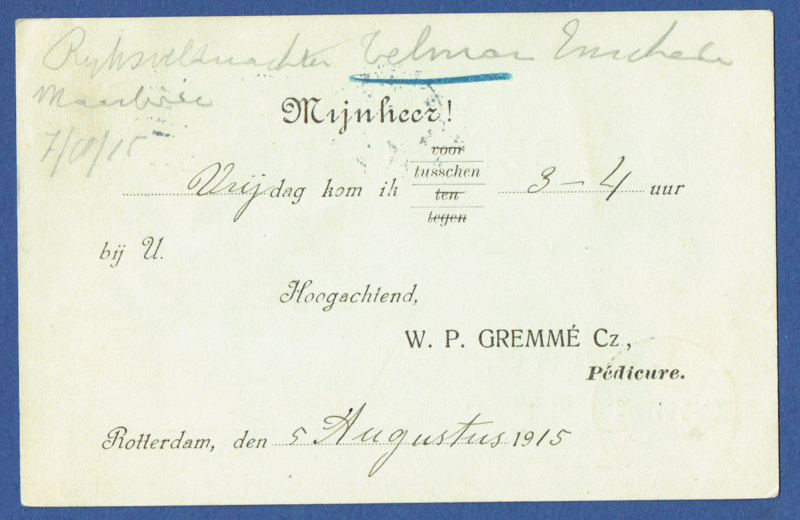 Rijksveldwachter Telman Enschede
7/8/15
Mijnheer!
voor
Vrijdag kom ik tusschen 3-4 uur
ten
tegen
bij U.
Hoogachtend,
W. P. GREMMÉ Cz,
Pédicure.
Rotterdam, den 5 Augustus 1915